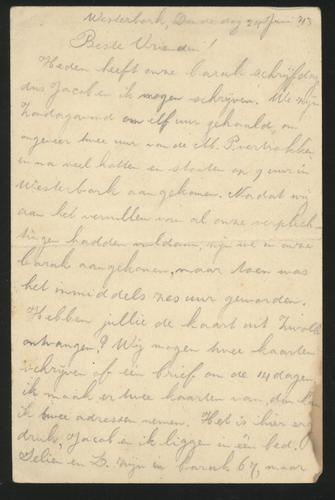 Westerbork, Donderdag 24 Juni '43
Beste Vrienden!
Heden heeft onze barak schrijfdag
dus Jacob en ik mogen schrijven. We zijn
Zondagavond om elf uur gehaald, om
ongeveer twee uur van de M. P. vertrokken
en na veel halten en stooten op 9 uur in
Westerbork aangekomen. Nadat wij
aan het vervullen van al onze verplich-
tingen hadden voldaan, zijn we in onze
barak aangekomen, maar toen was
het inmiddels zes uur geworden.
Hebben jullie de kaart uit Zwolle
ontvangen? Wij mogen twee kaarten
schrijven of één brief om de 14 dagen,
ik maak er twee kaarten van, dan kan
ik twee adressen nemen. Het is hier erg
druk, Jacob en ik liggen in één bed.
en B. zijn in barak 67, maar